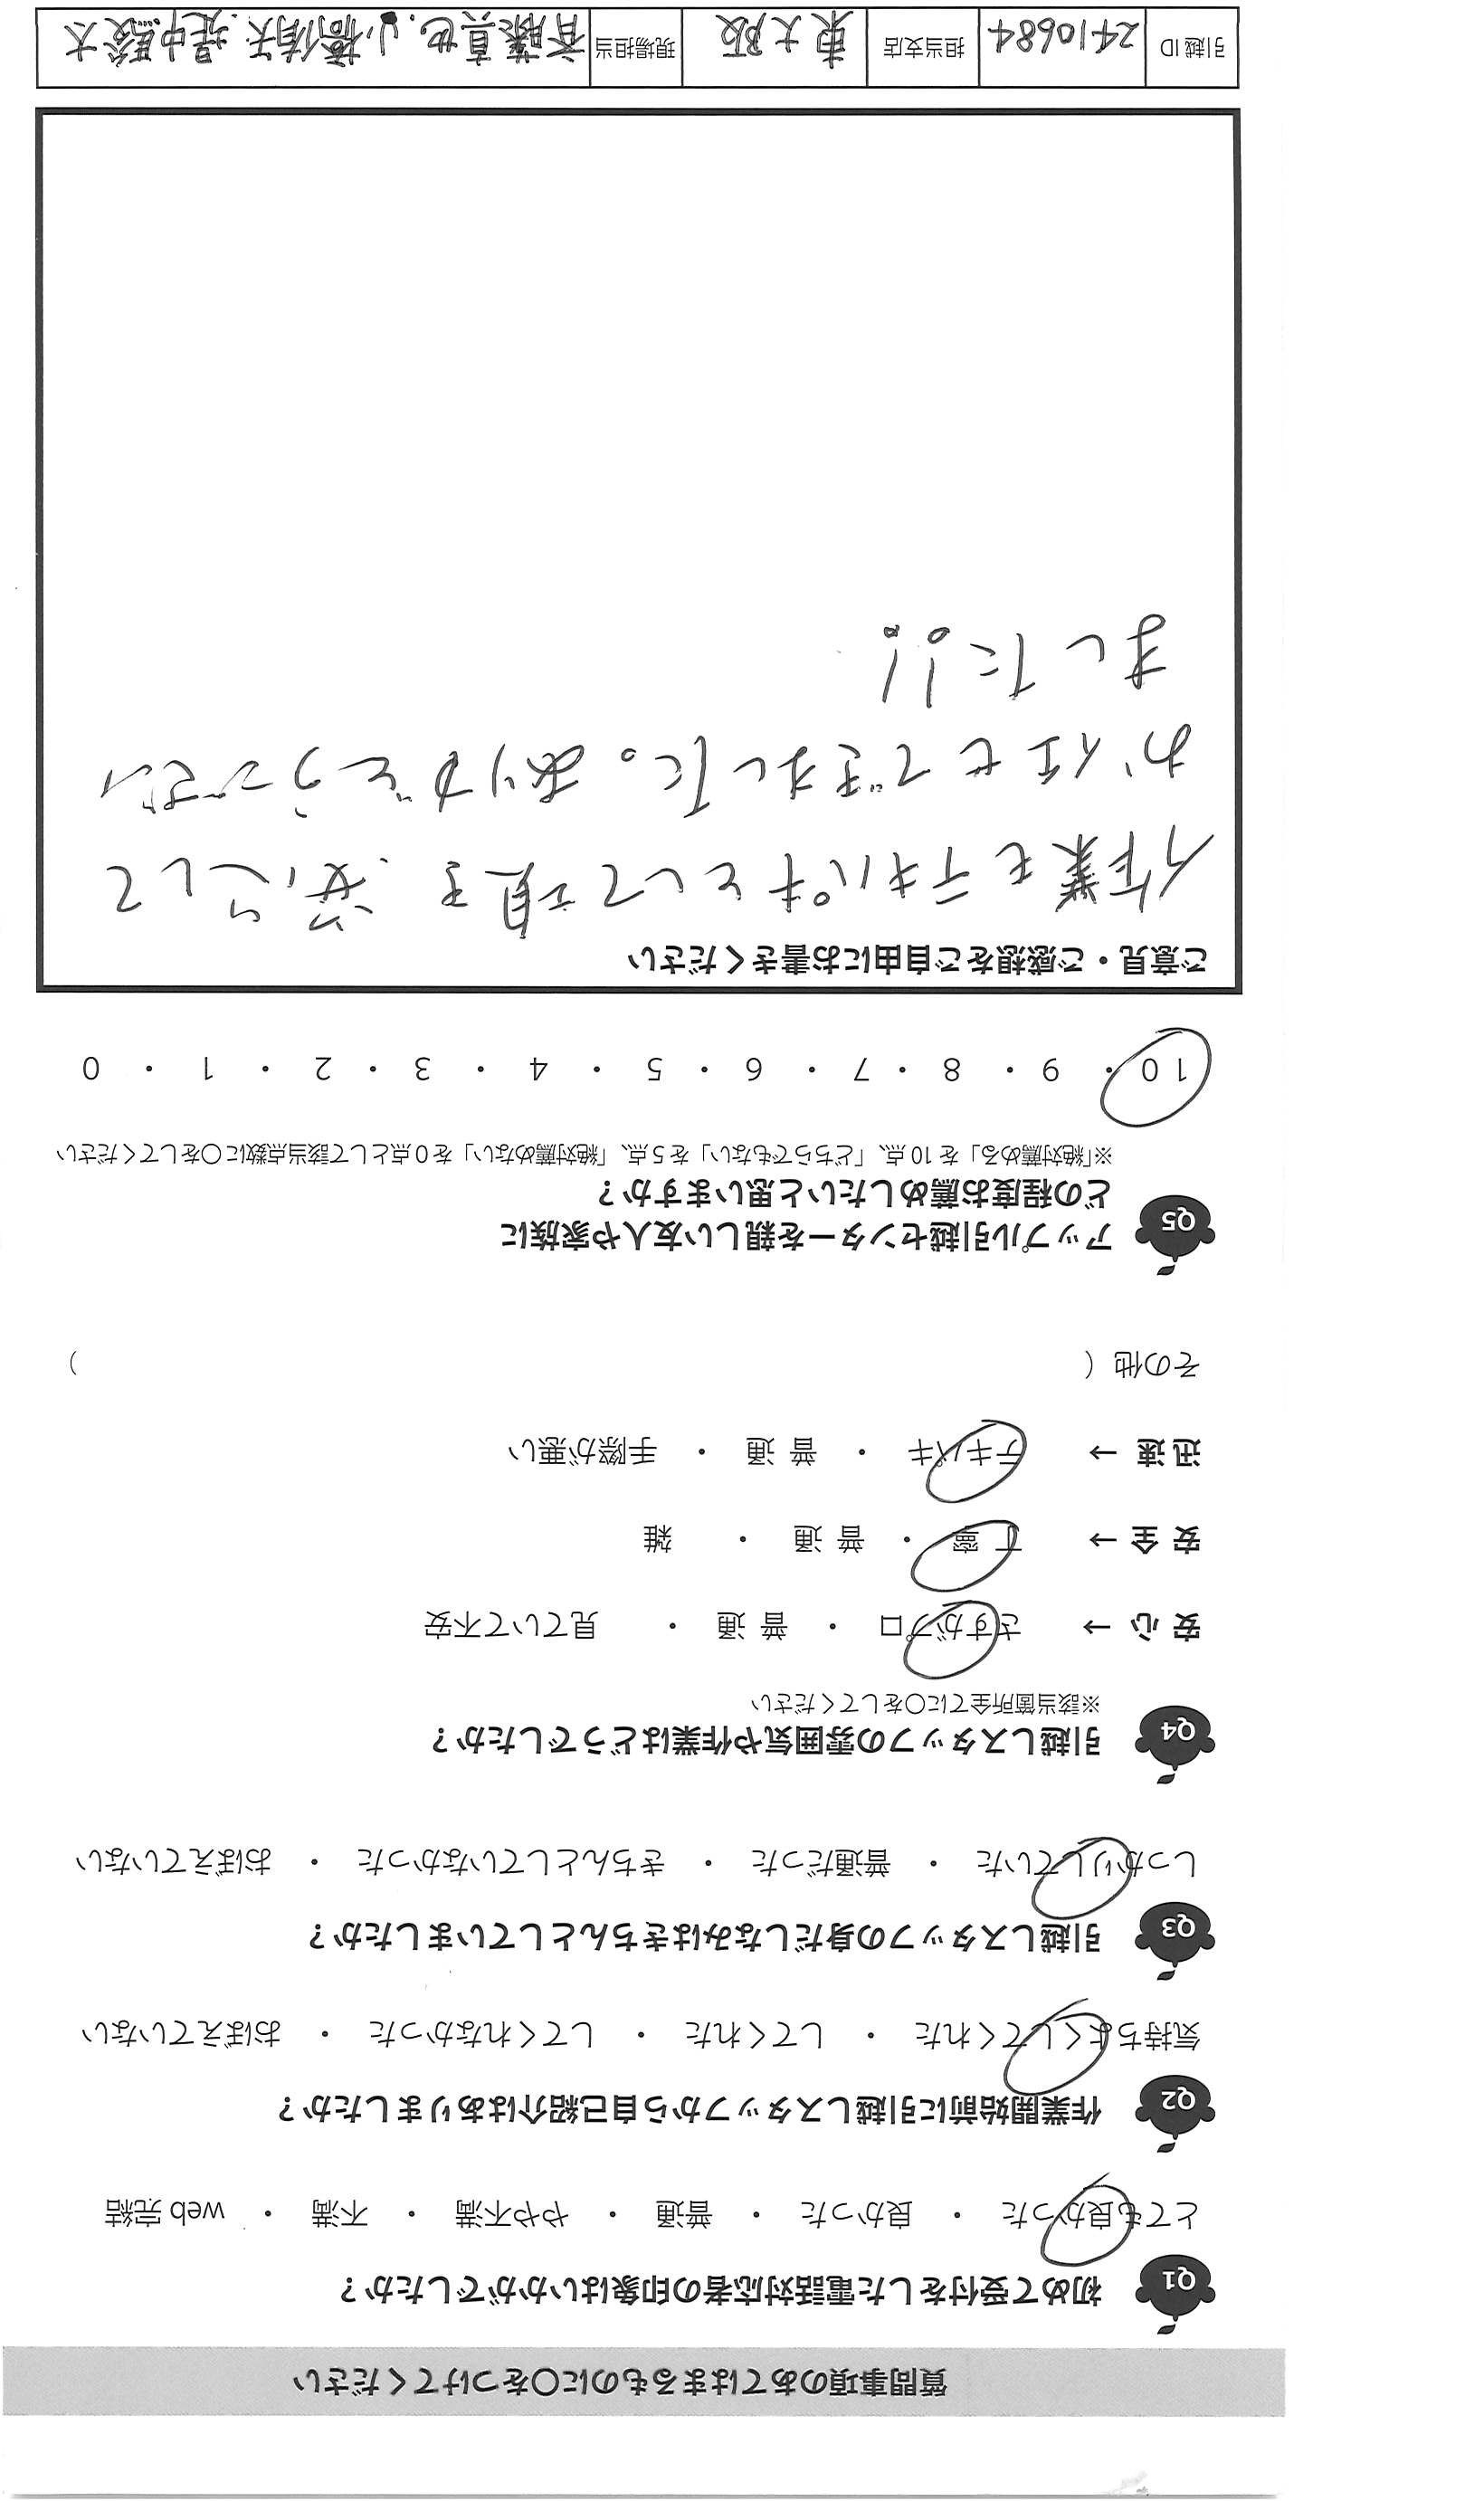 質問事項のあてはまるものに○をつけてください
Q1 初めて受付をした電話対応者の印象はいかがでしたか？
とても良かった ・ 良かった ・ 普通 ・ やや不満 ・ 不満 ・ web 完結
Q2 作業開始前に引越しスタッフから自己紹介はありましたか？
気持ちよくしてくれた ・ してくれた ・ してくれなかった ・ おぼえていない
Q3 引越しスタッフの身だしなみはきちんとしていましたか？
しっかりしていた ・ 普通だった ・ きちんとしていなかった ・ おぼえていない
Q4 引越しスタッフの雰囲気や作業はどうでしたか？
※該当箇所全てに○をしてください
安 心 → さすがプロ ・ 普 通 ・ 見ていて不安
安 全 → 丁 寧 ・ 普 通 ・ 雑
迅 速 → テキパキ ・ 普 通 ・ 手際が悪い
その他 ( )
Q5 アップル引越センターを親しい友人や家族に
どの程度お薦めしたいと思いますか？
※「絶対薦める」を 10 点、「どちらでもない」を 5 点、「絶対薦めない」を 0 点として該当点数に○をしてください
10 ・ 9 ・ 8 ・ 7 ・ 6 ・ 5 ・ 4 ・ 3 ・ 2 ・ 1 ・ 0
ご意見・ご感想をご自由にお書きください
作業もテキパキとして頂き、安心して
お任せできました。ありがとうござい
ました!!
引越 ID 2410684 担当支店 東大阪 現場担当 斉藤真也. 小橋侑矢. 堤中